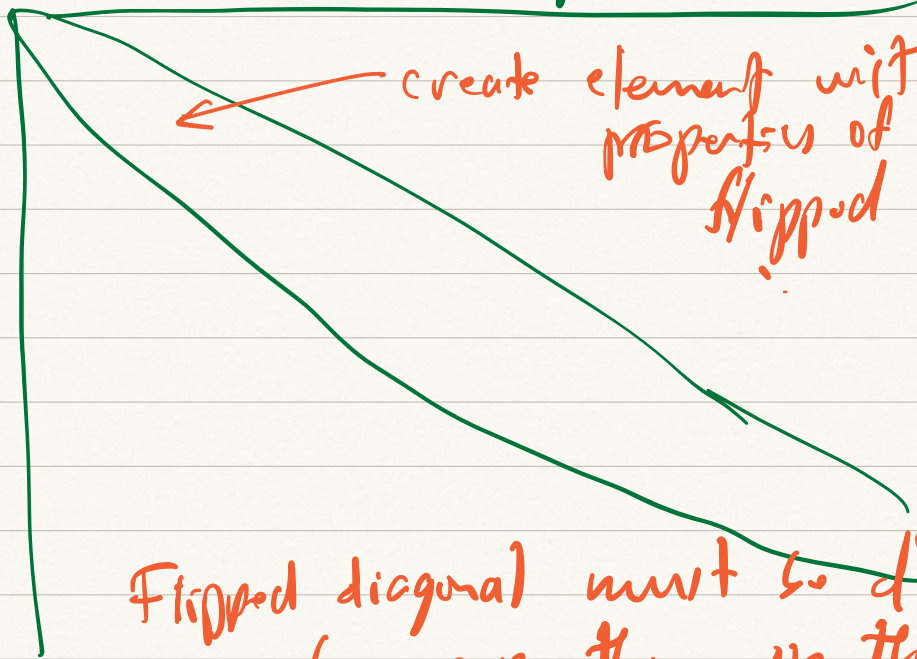 create element wit
properties of
flipped
Flipped diagonal must be d